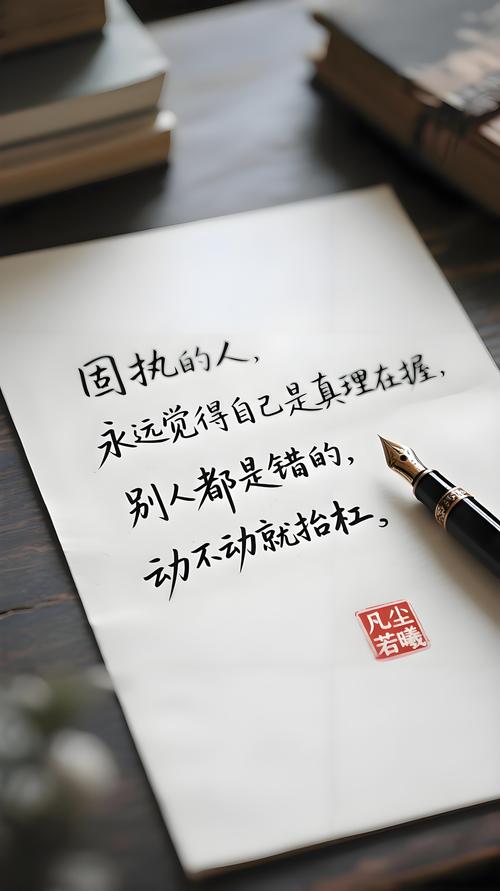 固执的人，
永远觉得自己是真理在握，
别人都是错的，
动不动就抬杠。
凡尘
若曦